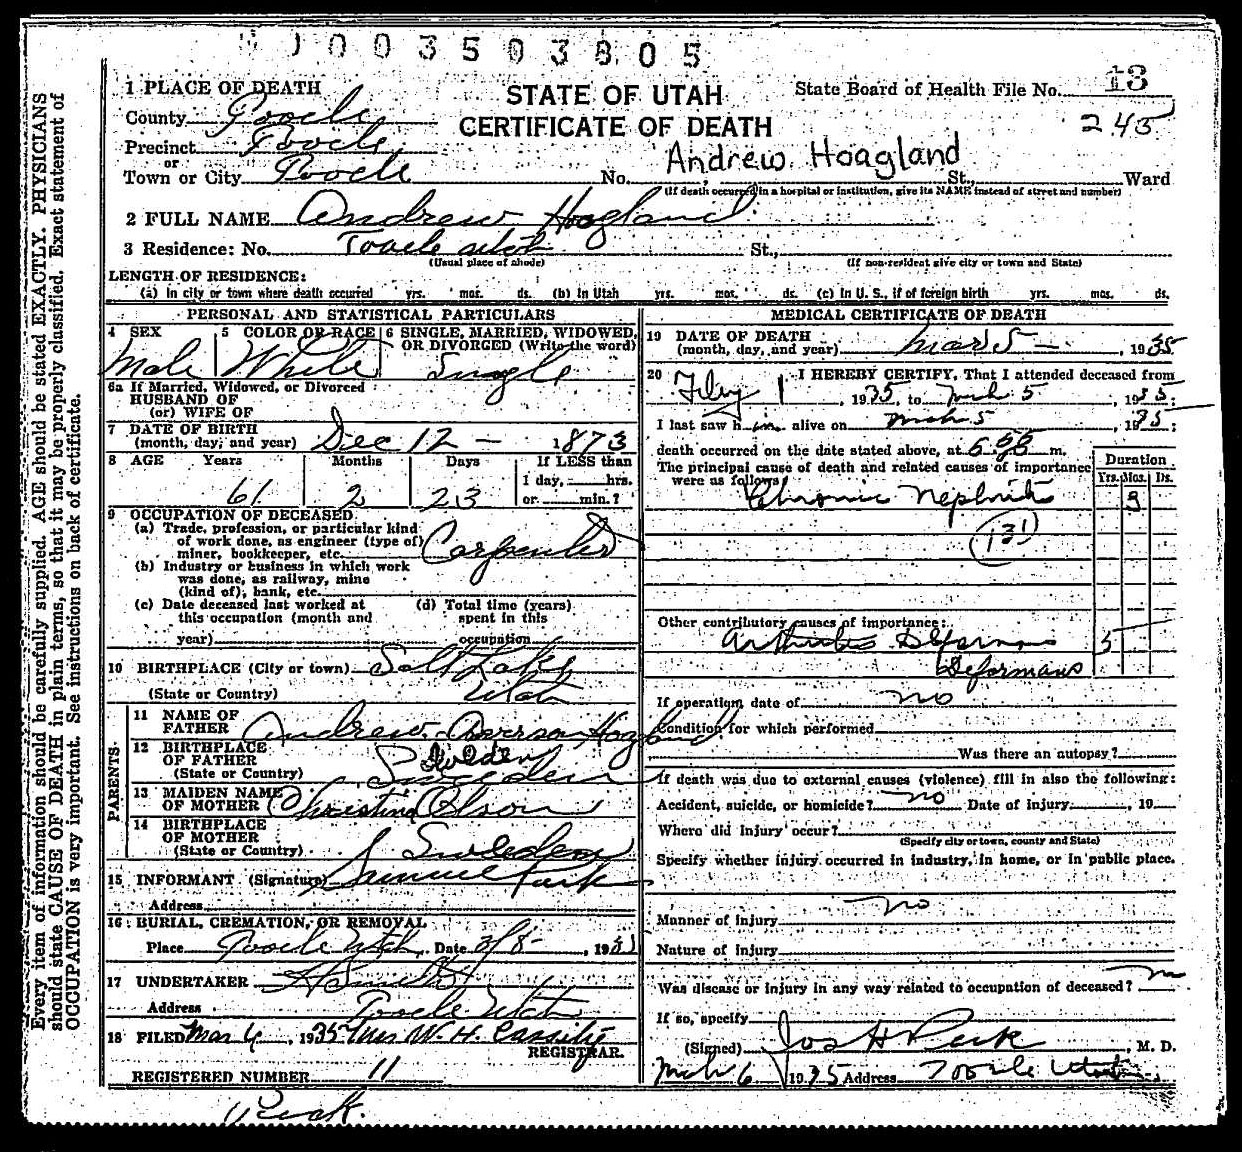 003503805
1 PLACE OF DEATH
STATE OF UTAH
State Board of Health File No. 13
County Tooele
CERTIFICATE OF DEATH
245
Precinct Tooele
or
Andrew Hoagland
Town or City Tooele No. , St., Ward
(If death occurred in a hospital or institution, give its NAME instead of street and number)
2 FULL NAME Andrew Hoagland
3 Residence: No. Tooele Utah St.,
(Usual place of abode) (If non-resident give city or town and State)
LENGTH OF RESIDENCE:
(a) In city or town where death occurred yrs. mos. ds. (b) In Utah yrs. mos. ds. (c) In U. S., if of foreign birth yrs. mos. ds.
PERSONAL AND STATISTICAL PARTICULARS
4 SEX 5 COLOR OR RACE 6 SINGLE, MARRIED, WIDOWED,
OR DIVORCED (Write the word)
Male White Single
6a If Married, Widowed, or Divorced
HUSBAND OF
(or) WIFE OF
7 DATE OF BIRTH
(month, day, and year) Dec 12 - 1873
8 AGE Years Months Days If LESS than
1 day, hrs.
61 2 23 or min.?
9 OCCUPATION OF DECEASED
(a) Trade, profession, or particular kind
of work done, as engineer (type of)
miner, bookkeeper, etc. Carpenter
(b) Industry or business in which work
was done, as railway, mine
(kind of), bank, etc.
(c) Date deceased last worked at (d) Total time (years)
this occupation (month and spent in this
year) occupation
10 BIRTHPLACE (City or town) Salt Lake
(State or Country) Utah
PARENTS
11 NAME OF
FATHER Andrew Hoagland
12 BIRTHPLACE
OF FATHER Sweden
(State or Country) Sweden
13 MAIDEN NAME
OF MOTHER Christina Olson
14 BIRTHPLACE
OF MOTHER
(State or Country) Sweden
15 INFORMANT (Signature) Samuel
Address
16 BURIAL, CREMATION, OR REMOVAL
Place Tooele Utah Date 3/8- , 19
17 UNDERTAKER
Address Tooele Utah
18 FILED Mar 6 , 1935 Mrs W. H. Cassity
REGISTRAR.
REGISTERED NUMBER 11
MEDICAL CERTIFICATE OF DEATH
19 DATE OF DEATH
(month, day, and year) Mar 5 - , 1935
20 I HEREBY CERTIFY, That I attended deceased from
Feby 1 , 1935, to Mch 5 , 1935;
I last saw h im alive on Mch 5 , 1935;
death occurred on the date stated above, at m.
The principal cause of death and related causes of importance
were as follows:
Duration
Yrs. Mos. Ds.
Chronic Nephritis
(131)
Other contributory causes of importance:
Arthritis Deformans 5
Deformans
If operation date of no
Condition for which performed
Was there an autopsy?
If death was due to external causes (violence) fill in also the following:
Accident, suicide, or homicide? no Date of injury , 19
Where did injury occur?
(Specify city or town, county and State)
Specify whether injury occurred in industry, in home, or in public place.
no
Manner of injury
Nature of injury
Was disease or injury in any way related to occupation of deceased? no
If so, specify
(Signed) Jos H Peck , M. D.
Mch 6 1935 Address Tooele Utah
Every item of information should be carefully supplied. AGE should be stated EXACTLY. PHYSICIANS
should state CAUSE OF DEATH in plain terms, so that it may be properly classified. Exact statement of
OCCUPATION is very important. See instructions on back of certificate.